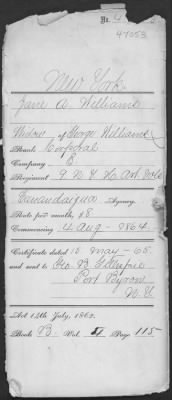 No. 4
47053
New York
Jane A. Williams
Widow of George Williams
Rank Corporal
Company B
Regiment 9 N Y H Art Vols
Canandaigua Agency.
Rate per month, $8
Commencing 4 Aug - 1864
Certificate dated 15 May - 65
and sent to Geo B
Port Byron
N. Y.
Act 14th July, 1862.
Book B Vol. Page 115